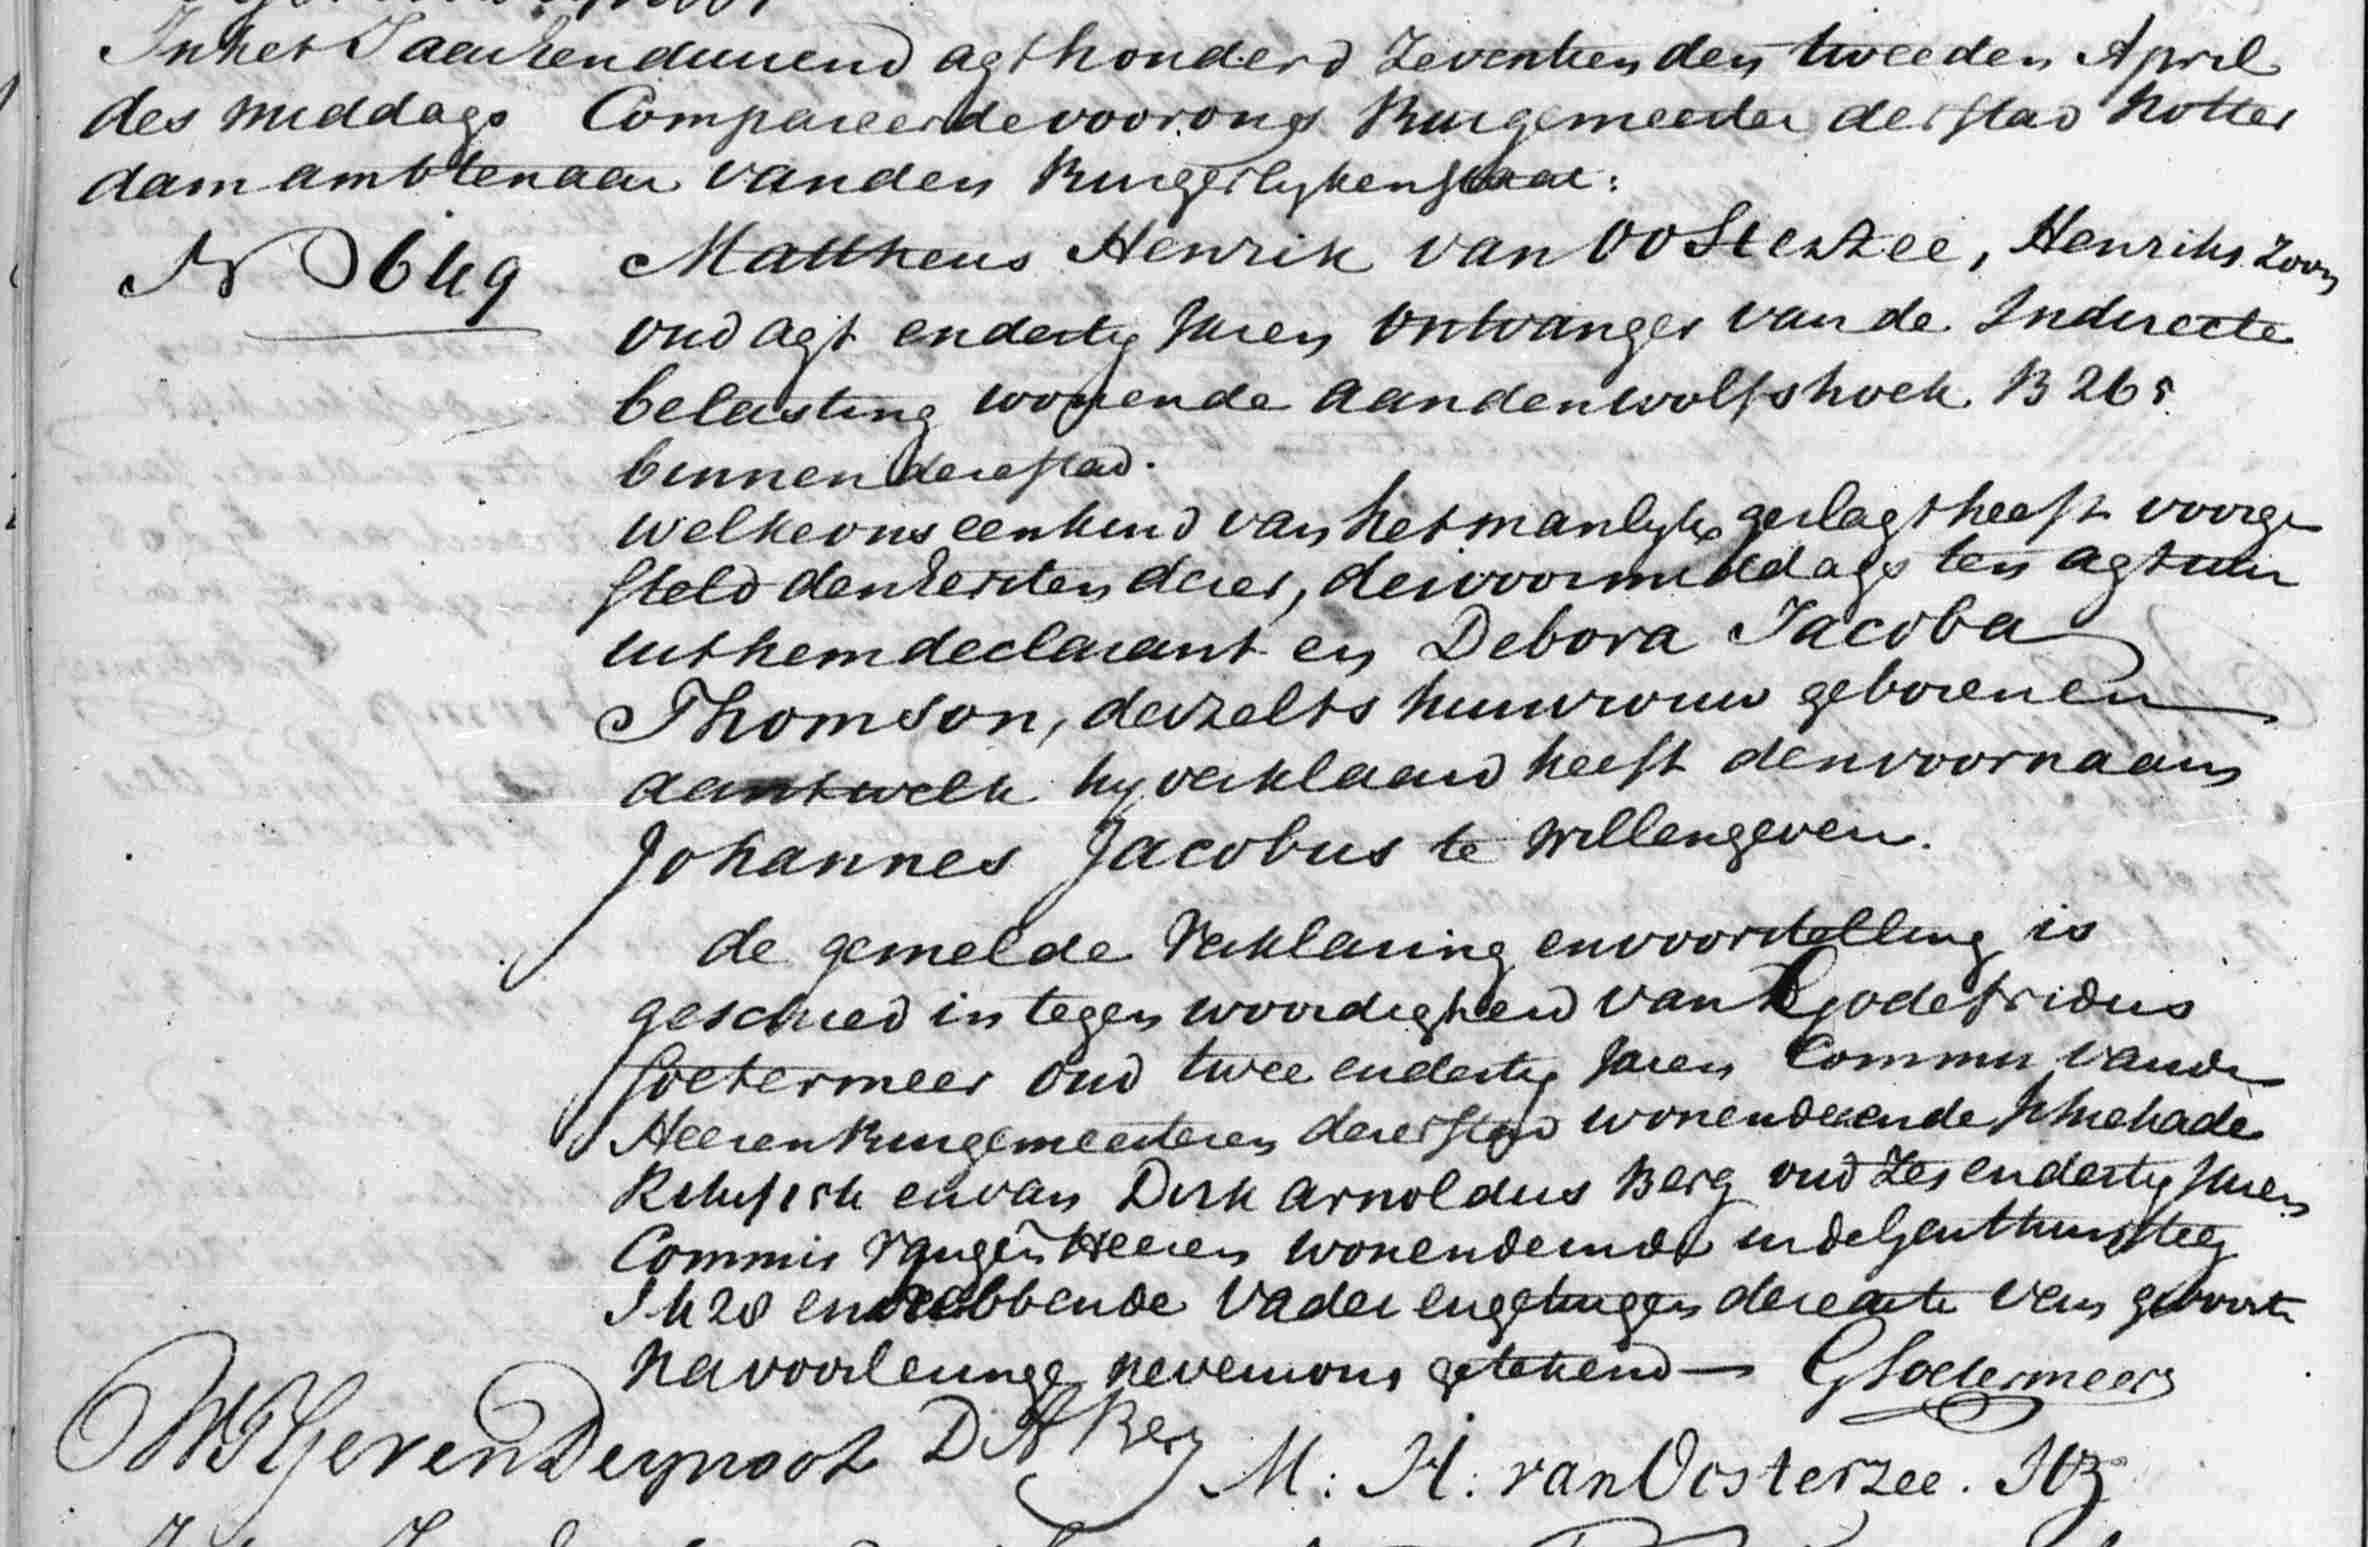 In het Jaar een duizend agt honderd Zeventien den tweeden April
des middags Compareerde voor ons Burgemeester der stad Rotter
dam ambtenaar van den Burgerlyken staat:
No 649
Mattheus Henrik van Oosterzee, Henriks Zoon
oud agt en dertig Jaren Ontvanger van de Indirecte
belasting wonende aan den wolfshoek B 265
binnen deze stad.
welke ons een kind van het manlyke geslagt heeft voorge
steld den eersten dezer, des voormiddags ten agt uur
uit hem declarant en Debora Jacoba
Thomson, deszelfs huisvrouw geboren en
aan 't welk hy verklaard heeft den voornaam
Johannes Jacobus te willen geven.
de gemelde Verklaring en voorstelling is
geschied in tegenwoordigheid van Godefridus
Soetermeer oud twee en dertig Jaren Commis van de
Heeren Burgemeesteren dezer stad wonende aan de Schiekade
en van Dirk Arnoldus Berg oud Zes en dertig Jaren
Commis van gem Heeren wonende in de
en hebbende Vader en getuigen deze acte van geboorte
na voorlezing nevens ons getekend — G Soetermeer
Gevers Deynoot D A Berg M: H: van Oosterzee. Hz